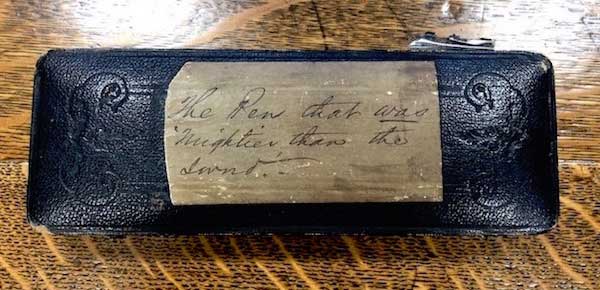 The Pen that was
'Mightier than the
Sword'.—